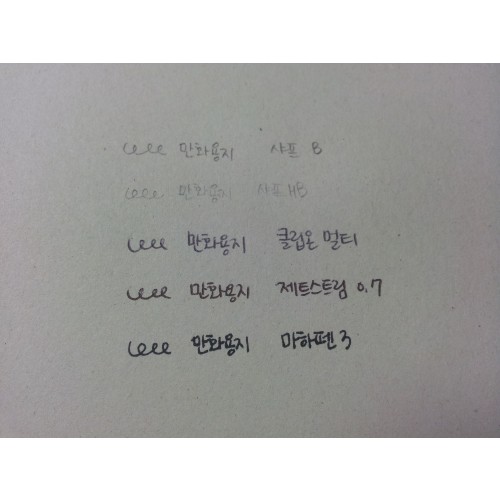 만화용지 샤프 B
만화용지 샤프 HB
만화용지 클립온 멀티
만화용지 제트스트림 0.7
만화용지 마하펜 3